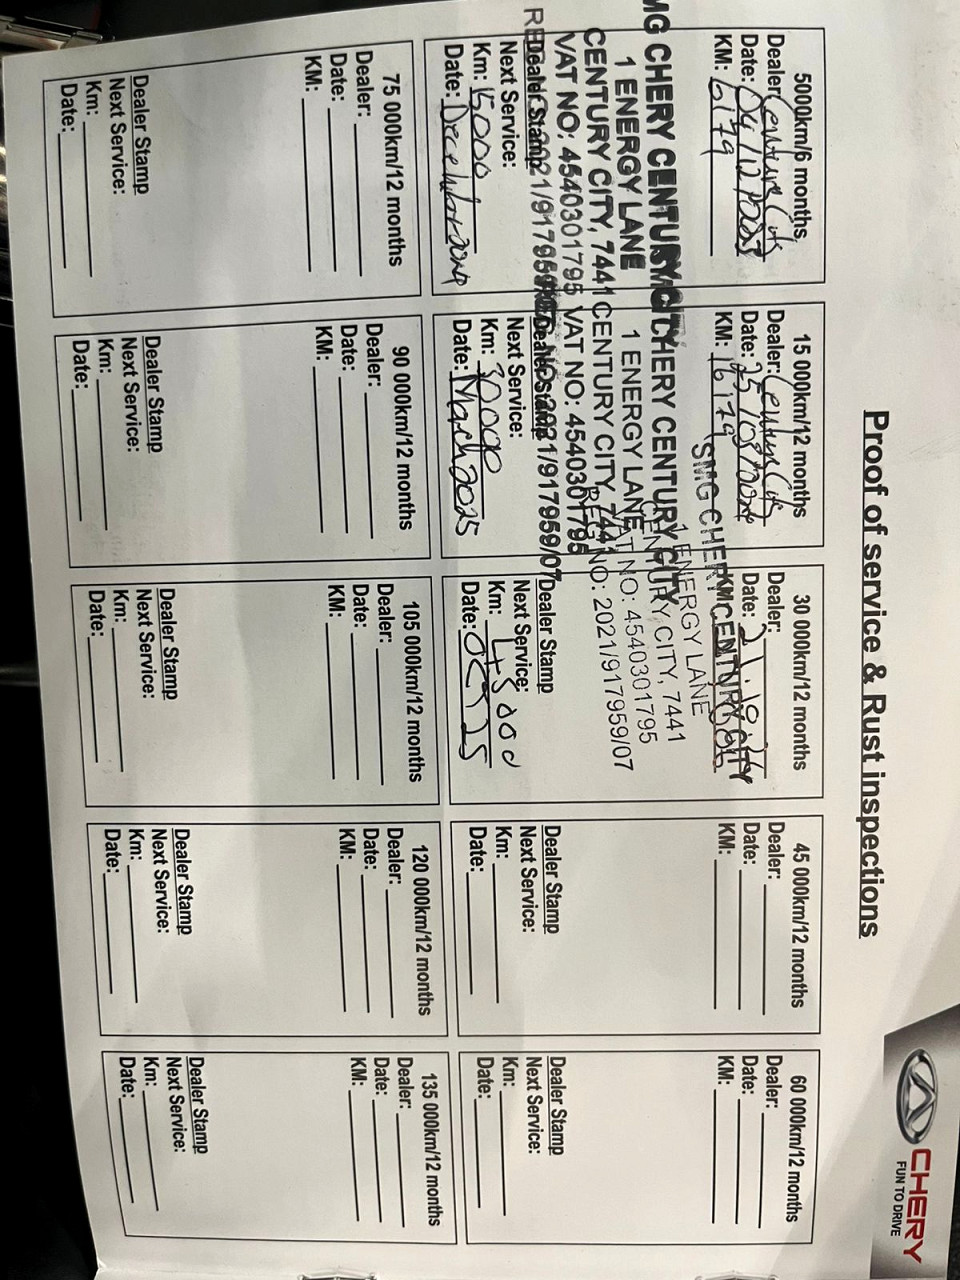 Proof of service & Rust inspections
CHERY
FUN TO DRIVE
5000km/6 months
Dealer: Century City
Date: 04/12/2023
KM: 6179
SMG CHERY CENTURY CITY
1 ENERGY LANE
CENTURY CITY, 7441
VAT NO: 4540301795
Dealer Stamp
Next Service:
Km: 15000
Date: December 2024
15 000km/12 months
Dealer: Century City
Date: 25/03/2024
KM: 16179
CHERY CENTURY CITY
1 ENERGY LANE
CENTURY CITY, 7441
VAT NO: 4540301795
2021/917959/07
Dealer Stamp
Next Service:
Km: 30000
Date: March 2025
30 000km/12 months
Dealer:
Date: 21.10.24
KM:
SMG CHERY CENTURY CITY
1 ENERGY LANE
CENTURY CITY, 7441
VAT NO: 4540301795
REG NO: 2021/917959/07
Dealer Stamp
Next Service:
Km: 45000
Date: Oct 25
45 000km/12 months
Dealer:
Date:
KM:
Dealer Stamp
Next Service:
Km:
Date:
60 000km/12 months
Dealer:
Date:
KM:
Dealer Stamp
Next Service:
Km:
Date:
75 000km/12 months
Dealer:
Date:
KM:
Dealer Stamp
Next Service:
Km:
Date:
90 000km/12 months
Dealer:
Date:
KM:
Dealer Stamp
Next Service:
Km:
Date:
105 000km/12 months
Dealer:
Date:
KM:
Dealer Stamp
Next Service:
Km:
Date:
120 000km/12 months
Dealer:
Date:
KM:
Dealer Stamp
Next Service:
Km:
Date:
135 000km/12 months
Dealer:
Date:
KM:
Dealer Stamp
Next Service:
Km:
Date: